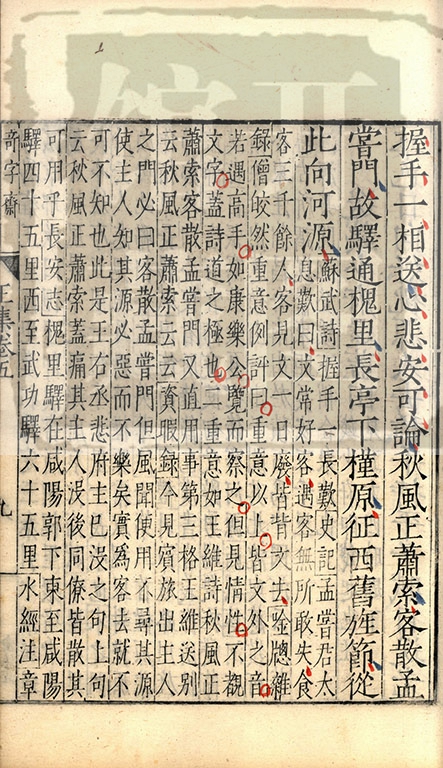 握手一相送心悲安可論秋風正蕭索客散孟
嘗門故驛通槐里長亭下槿原征西舊旌節從
此向河源
蘇武詩握手一長歎史記孟嘗君太
息歎曰文常好客遇客無所敢失食
客三千餘人客見文一日廢皆背文去唫牕雜
錄僧皎然重意例評曰重意以上皆文外之音
若遇高手如康樂公覽而察之但見情性不覩
文字蓋詩道之極也二重意如王維詩秋風正
蕭索客散孟嘗門又直用事第三格王維送別
云秋風正蕭索云云資暇録今見賓旅出主人
之門必曰客散孟嘗門但風聞便用不尋其源
使主人知其源必惡而不樂矣實為客去就不
可不知也此是王右丞悲府主已沒之句上句
云秋風正蕭索蓋痛其主人沒後同僚皆散其
可用乎長安志槐里驛在咸陽郭下東至咸陽
驛四十五里西至武功驛六十五里水經注章
奇字齋 王集卷五 九